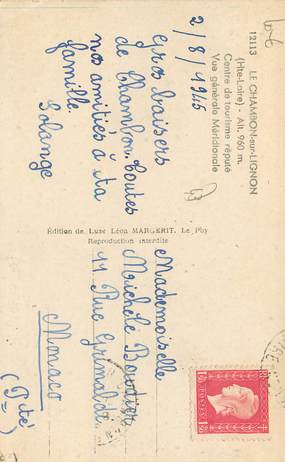 12113 LE CHAMBON-sur-LIGNON
(Hte-Loire) - Alt. 960 m.
Centre de tourisme réputé
Vue générale Méridionale
2/8/1945
Gros baisers
de Chambon toutes
nos amitiés à ta
famille
Solange
Édition de Luxe Léon MARGERIT, Le Puy
Reproduction interdite
Mademoiselle
Michèle
11 Rue Grimaldi
Monaco
(Pté)